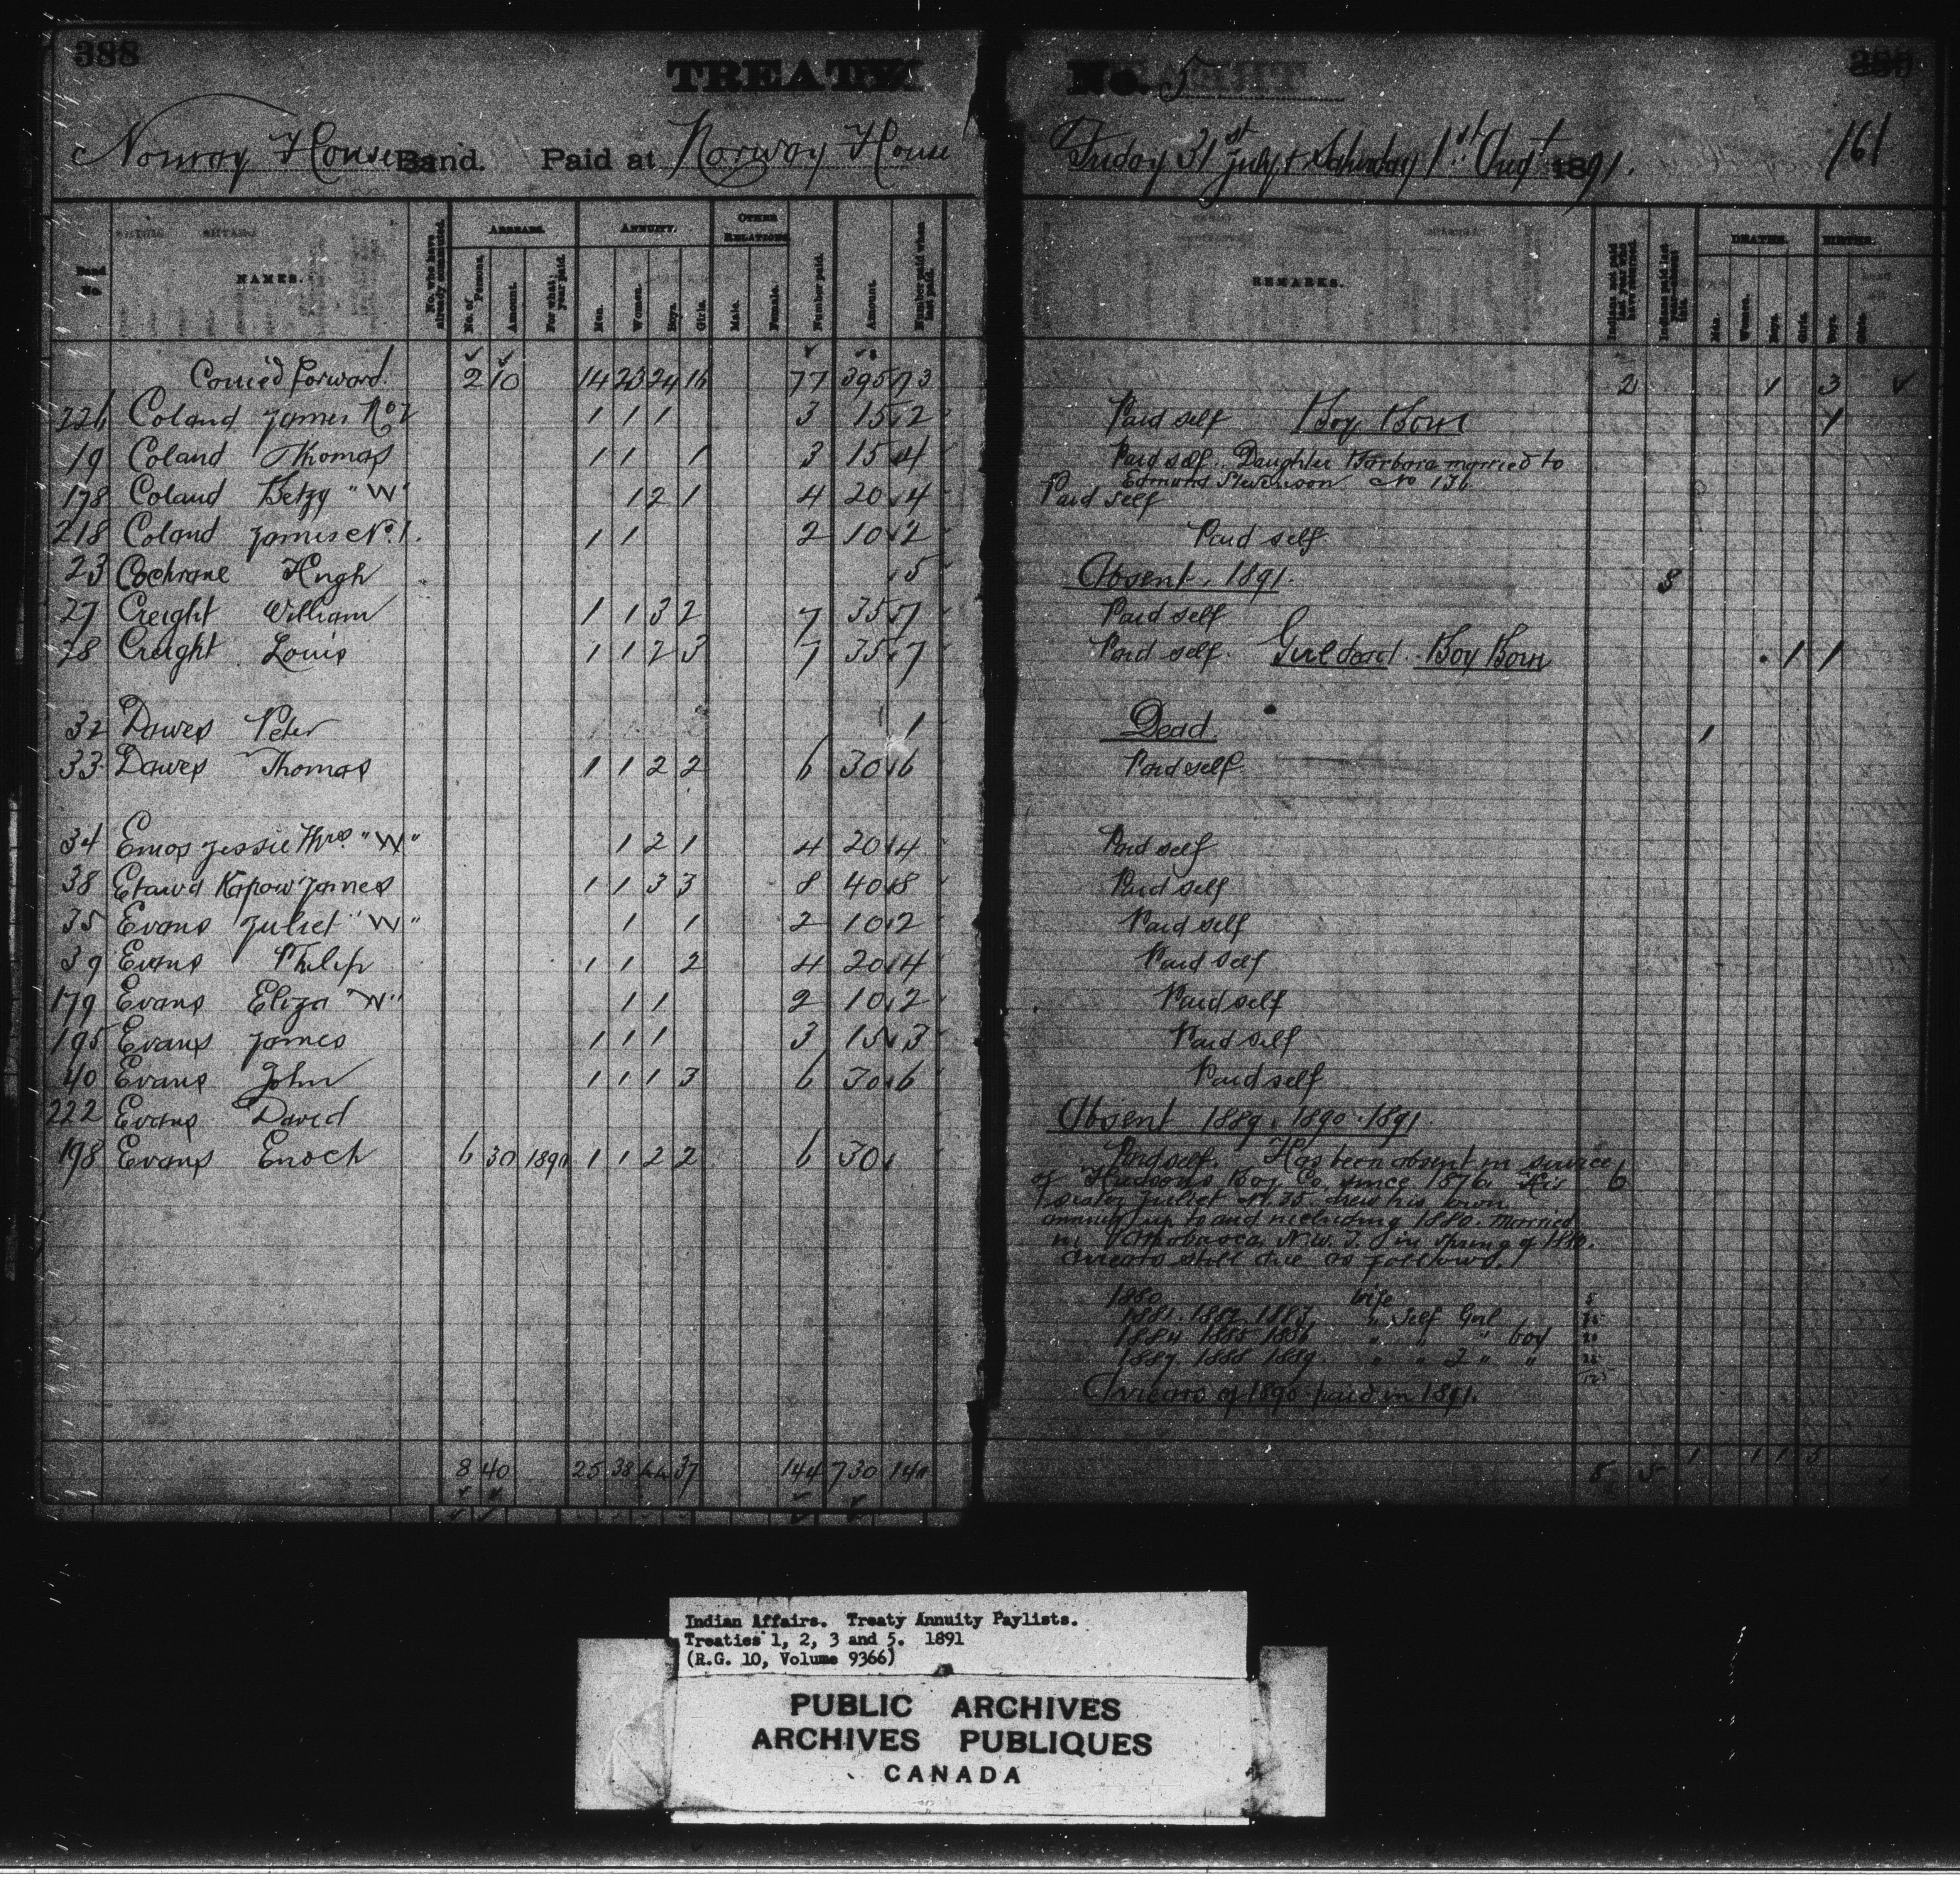 388
TREATY No. 5
Norway House Band. Paid at Norway House Friday 31st July & Saturday 1st Augt 1891. 161
Band No. NAMES. No. who have already commuted. ARREARS. No. of Persons. Amount. For what year paid. ANNUITY. Men. Women. Boys. Girls. OTHER RELATIONS. Male. Female. Number paid. Amount. Number paid when last paid. REMARKS. DEATHS. Men. Women. Boys. Girls. BIRTHS. Boys. Girls.
Carried forward. 2 10 14 23 24 16 77 395 73 2 1 3
226 Coland James No 2 1 1 1 3 15 2 Paid self Boy Born 1
19 Coland Thomas 1 1 1 3 15 4 Paid self. Daughter Barbara married to
Edmund Stevenson No 136
178 Coland Betzy "W" 1 2 1 4 20 4 Paid self
218 Coland James No. 1. 1 1 2 10 2 Paid self
23 Cochrane Hugh 5 Absent. 1891.
27 Creight William 1 1 3 2 7 35 7 Paid self
28 Creight Louis 1 1 2 3 7 35 7 Paid self. Girl dead. Boy Born 1 1
32 Dawes Peter 1 Dead. 1
33 Dawes Thomas 1 1 2 2 6 30 6 Paid self
34 Emos Jessie Mrs. "W" 1 2 1 4 20 4 Paid self
38 Etawa Kapow James 1 1 3 3 8 40 8 Paid self
35 Evans Juliet "W" 1 1 2 10 2 Paid self
39 Evans Philip 1 1 2 4 20 4 Paid self
179 Evans Eliza "W" 1 1 2 10 2 Paid self
195 Evans James 1 1 1 3 15 3 Paid self
40 Evans John 1 1 1 3 6 30 6 Paid self
222 Evans David Absent 1889. 1890. 1891.
198 Evans Enoch 6 30 1890 1 1 2 2 6 30 Paid self. Has been absent in service 6
of Hudsons Bay Co. since 1876. His
sister Juliet No. 35 drew his own
annuity up to and including 1880. Married
in Athabasca N.W.T. in spring of 1880.
Arrears still due as follows.
1880 wife 5
1881. 1882. 1883. " Self Girl
1884 1885 1886 " " " boy 20
1887. 1888 1889. " " 2 " "
Arrears of 1890 paid in 1891.
8 40 25 38 44 37 144 730 140 8 5 1 1 1 5
Indian Affairs. Treaty Annuity Paylists.
Treaties 1, 2, 3 and 5. 1891
(R.G. 10, Volume 9366)
PUBLIC ARCHIVES
ARCHIVES PUBLIQUES
CANADA